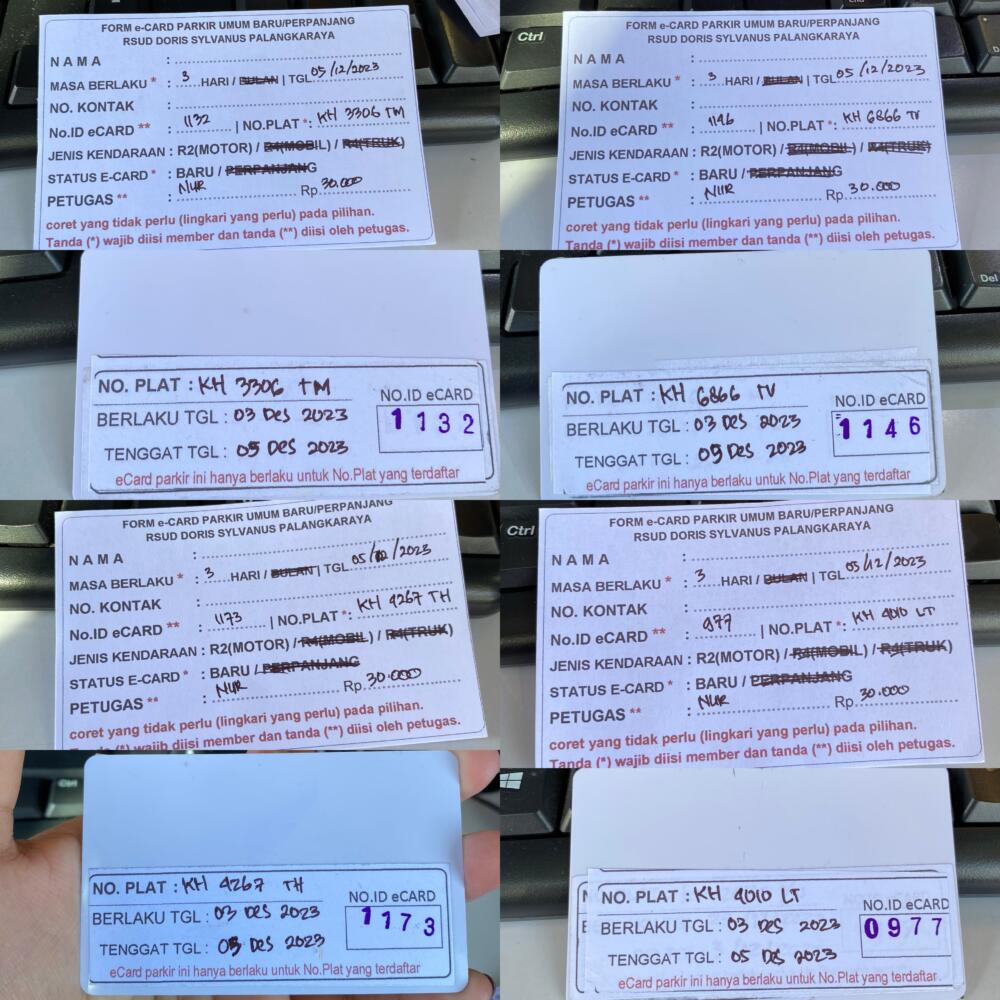 FORM e-CARD PARKIR UMUM BARU/PERPANJANG
RSUD DORIS SYLVANUS PALANGKARAYA
NAMA :
MASA BERLAKU * : 3 HARI / BULAN | TGL 05/12/2023
NO. KONTAK :
No.ID eCARD ** : 1132 | NO.PLAT *: KH 3306 TM
JENIS KENDARAAN : R2(MOTOR) / R4(MOBIL) / R4(TRUK)
STATUS E-CARD * : BARU / PERPANJANG
PETUGAS ** : NUR Rp. 30.000
coret yang tidak perlu (lingkari yang perlu) pada pilihan.
Tanda (*) wajib diisi member dan tanda (**) diisi oleh petugas.
Ctrl
FORM e-CARD PARKIR UMUM BARU/PERPANJANG
RSUD DORIS SYLVANUS PALANGKARAYA
NAMA :
MASA BERLAKU * : 3 HARI / BULAN | TGL 05/12/2023
NO. KONTAK :
No.ID eCARD ** : 1146 | NO.PLAT *: KH 6866 TV
JENIS KENDARAAN : R2(MOTOR) / R4(MOBIL) / R4(TRUK)
STATUS E-CARD * : BARU / PERPANJANG
PETUGAS ** : NUR Rp. 30.000
coret yang tidak perlu (lingkari yang perlu) pada pilihan.
Tanda (*) wajib diisi member dan tanda (**) diisi oleh petugas.
NO. PLAT : KH 3306 TM
BERLAKU TGL : 03 DES 2023
TENGGAT TGL : 05 DES 2023
NO.ID eCARD
1132
eCard parkir ini hanya berlaku untuk No.Plat yang terdaftar
Del
NO. PLAT : KH 6866 TV
BERLAKU TGL : 03 DES 2023
TENGGAT TGL : 05 DES 2023
NO.ID eCARD
1146
eCard parkir ini hanya berlaku untuk No.Plat yang terdaftar
FORM e-CARD PARKIR UMUM BARU/PERPANJANG
RSUD DORIS SYLVANUS PALANGKARAYA
NAMA :
MASA BERLAKU * : 3 HARI / BULAN | TGL 05/12/2023
NO. KONTAK :
No.ID eCARD ** : 1173 | NO.PLAT *: KH 4267 TH
JENIS KENDARAAN : R2(MOTOR) / R4(MOBIL) / R4(TRUK)
STATUS E-CARD * : BARU / PERPANJANG
PETUGAS ** : NUR Rp. 30.000
coret yang tidak perlu (lingkari yang perlu) pada pilihan.
Tanda (*) wajib diisi member dan tanda (**) diisi oleh petugas.
Ctrl
FORM e-CARD PARKIR UMUM BARU/PERPANJANG
RSUD DORIS SYLVANUS PALANGKARAYA
NAMA :
MASA BERLAKU * : 3 HARI / BULAN | TGL 05/12/2023
NO. KONTAK :
No.ID eCARD ** : 977 | NO.PLAT *: KH 4010 LT
JENIS KENDARAAN : R2(MOTOR) / R4(MOBIL) / R4(TRUK)
STATUS E-CARD * : BARU / PERPANJANG
PETUGAS ** : NUR Rp. 30.000
coret yang tidak perlu (lingkari yang perlu) pada pilihan.
Tanda (*) wajib diisi member dan tanda (**) diisi oleh petugas.
Ctrl
NO. PLAT : KH 4267 TH
BERLAKU TGL : 03 DES 2023
TENGGAT TGL : 05 DES 2023
NO.ID eCARD
1173
eCard parkir ini hanya berlaku untuk No.Plat yang terdaftar
NO. PLAT : KH 4010 LT
BERLAKU TGL : 03 DES 2023
TENGGAT TGL : 05 DES 2023
NO.ID eCARD
0977
eCard parkir ini hanya berlaku untuk No.Plat yang terdaftar